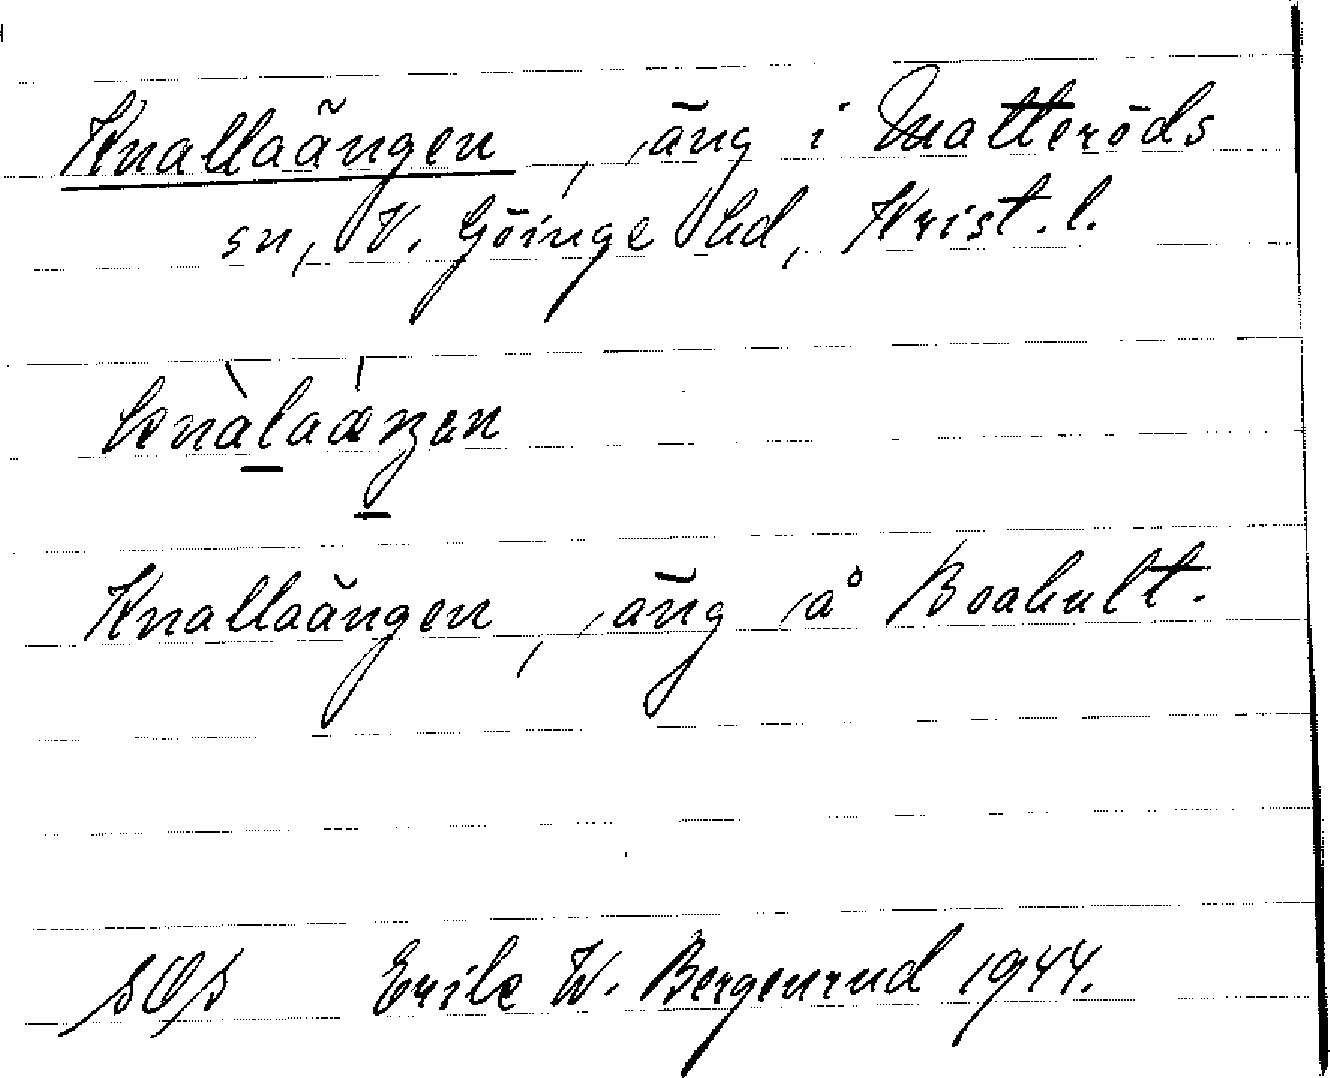 Knallaängen, äng i Matteröds
sn, V. Göinge hd, Krist. l.
knàlaæŋən
Knallaängen, äng å Boahult.
SOS Erik W. Bergenrud 1944.